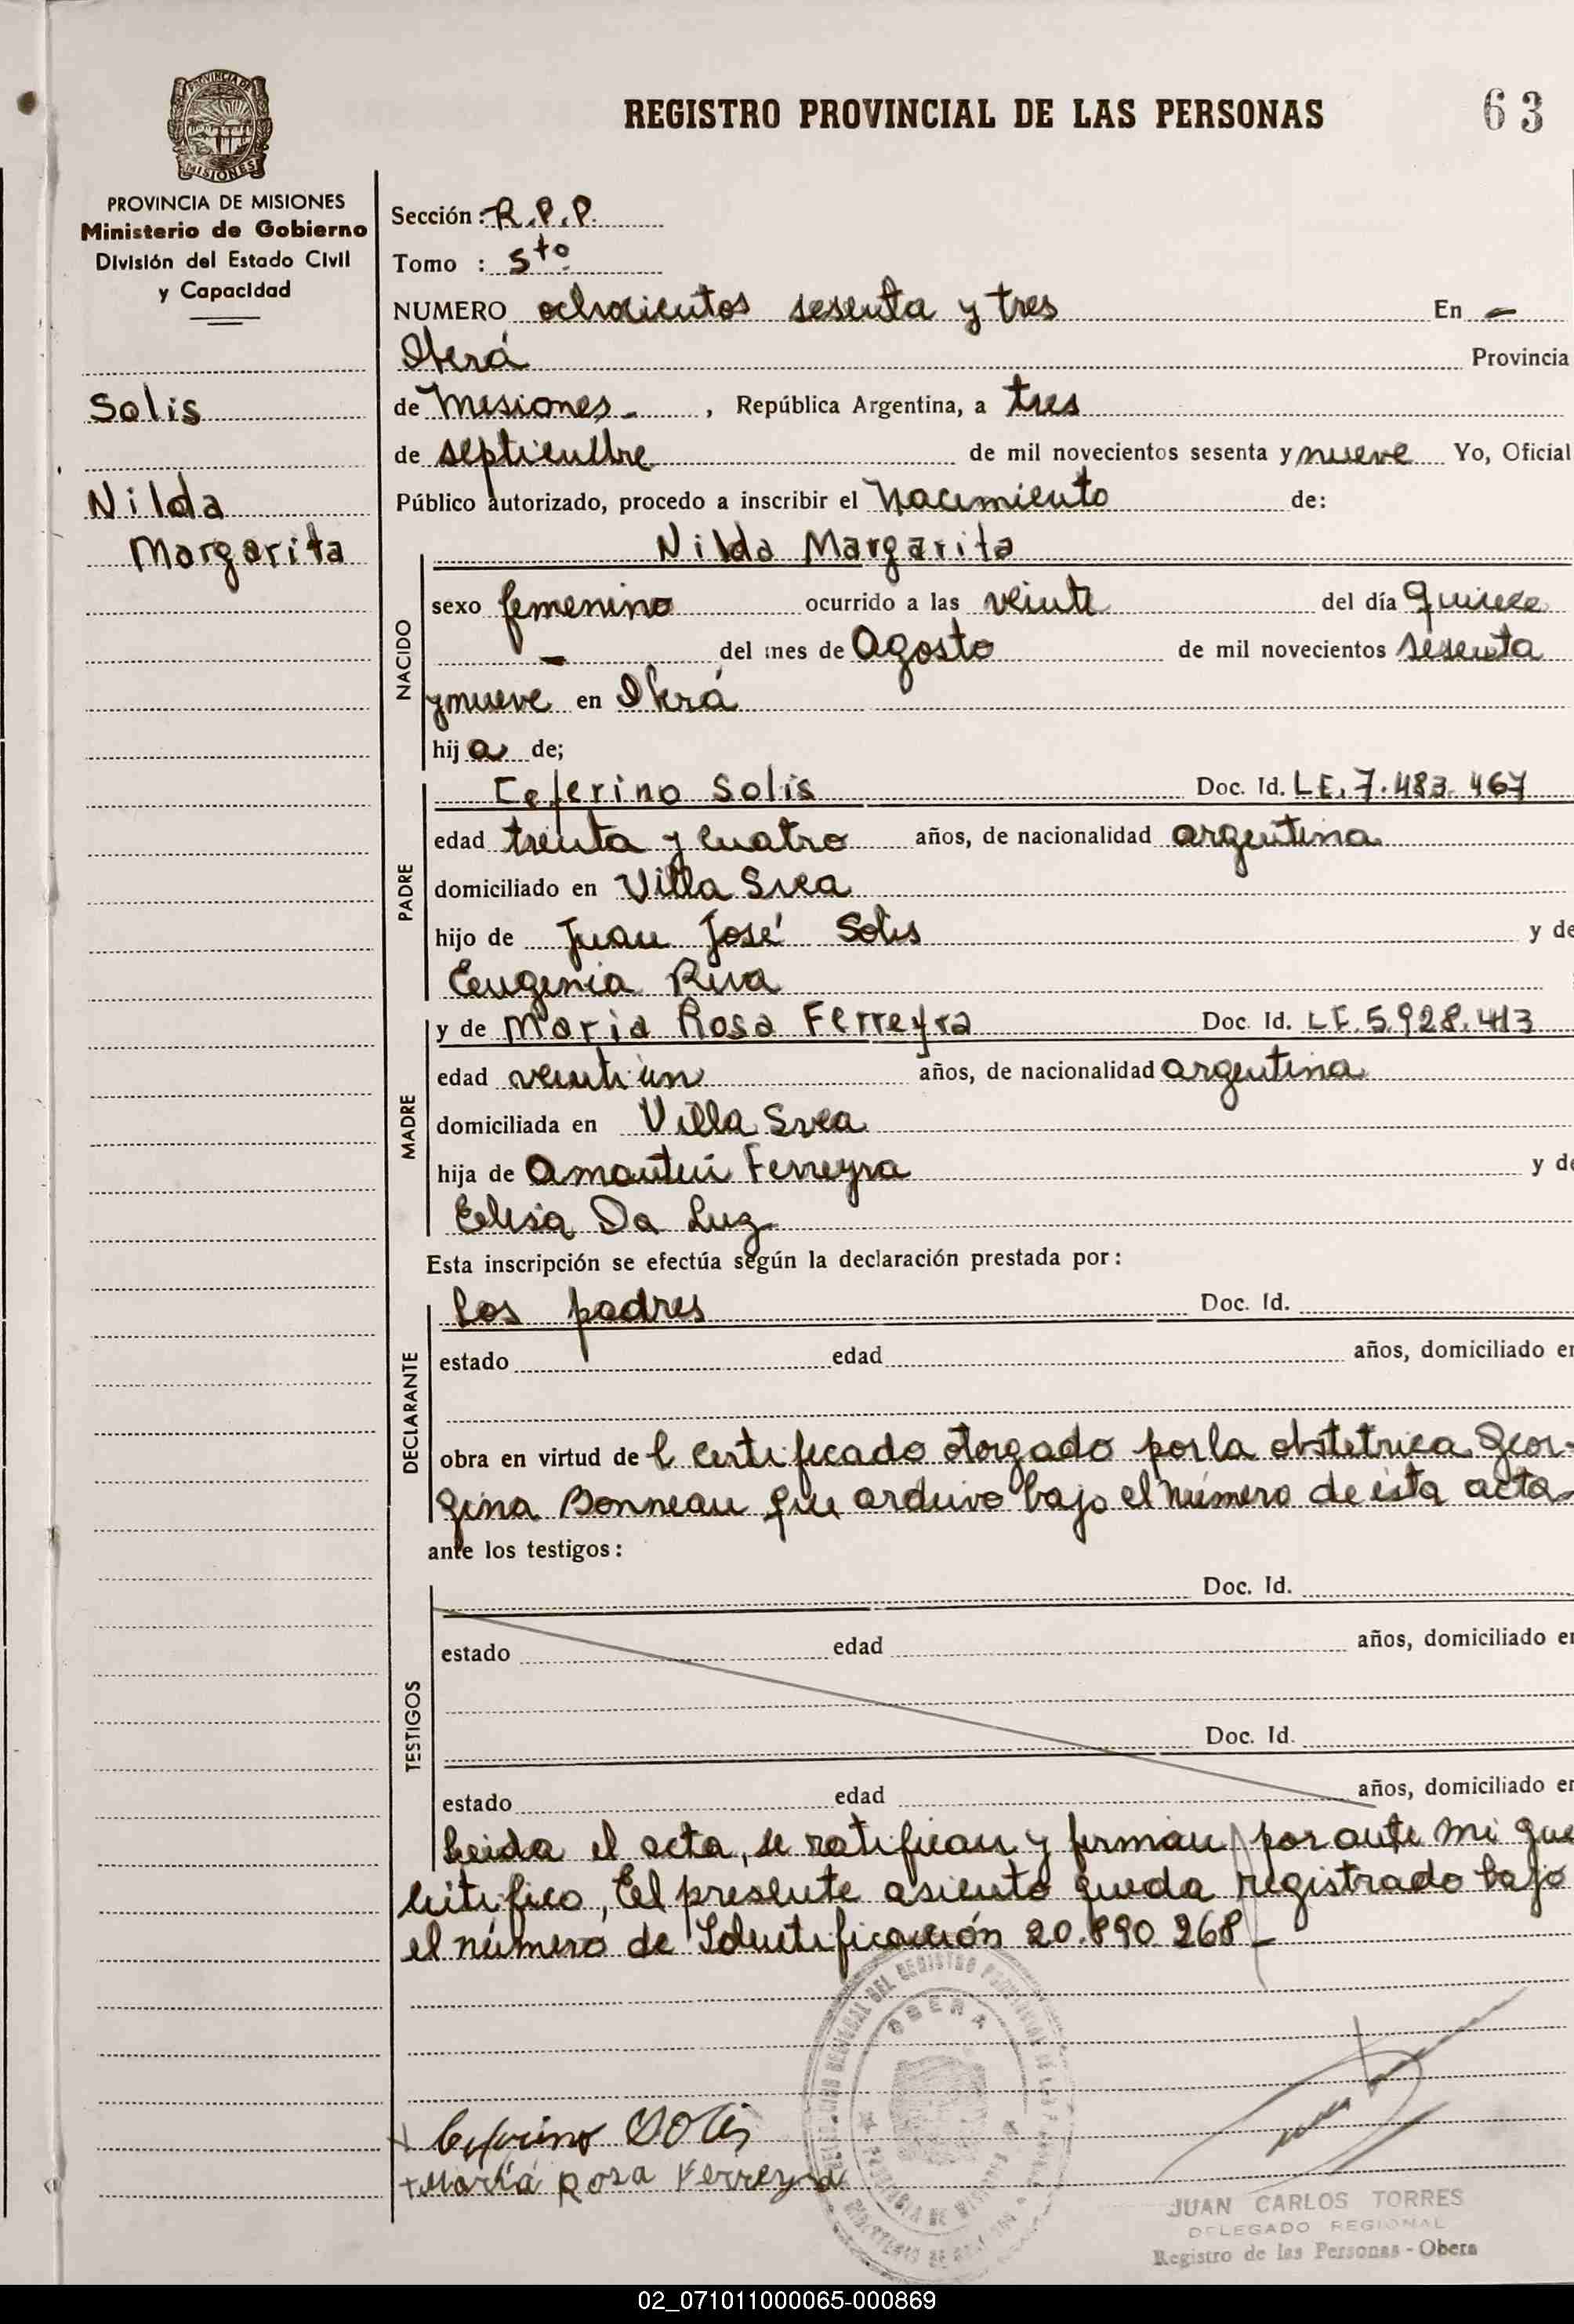 PROVINCIA DE
MISIONES
REGISTRO PROVINCIAL DE LAS PERSONAS
63
PROVINCIA DE MISIONES
Ministerio de Gobierno
División del Estado Civil
y Capacidad
Solis
Nilda
Margarita
Sección : R.P.P.
Tomo : 5to
NUMERO ochocientos sesenta y tres En -
Oberá Provincia
de Misiones , República Argentina, a tres
de septiembre de mil novecientos sesenta y nueve Yo, Oficial
Público autorizado, procedo a inscribir el Nacimiento de:
NACIDO
Nilda Margarita
sexo femenino ocurrido a las veinte del día quince
- del mes de Agosto de mil novecientos sesenta
y nueve en Oberá
hija de;
PADRE
Ceferino Solis Doc. Id. L.E. 7.483.467
edad treinta y cuatro años, de nacionalidad argentina
domiciliado en Villa Svea
hijo de Juan José Solis y de
Eugenia Riva
MADRE
y de Maria Rosa Ferreyra Doc. Id. 5.928.413
edad veintiún años, de nacionalidad argentina
domiciliada en Villa Svea
hija de Ferreyra y de
Elisa Da Luz
Esta inscripción se efectúa según la declaración prestada por:
DECLARANTE
los padres Doc. Id.
estado edad años, domiciliado en
obra en virtud del certificado otorgado por la obstetrica Geor-
gina Bonneau que archivo bajo el número de esta acta
ante los testigos:
TESTIGOS
Doc. Id.
estado edad años, domiciliado en
Doc. Id.
estado edad años, domiciliado en
Leida el acta, se ratifican y firman por ante mi que
certifico, El presente asiento queda registrado bajo
el número de Identificación 20.890.268 -
OBERA
Ceferino Solis
Maria Rosa Ferreyra
JUAN CARLOS TORRES
DELEGADO REGIONAL
Registro de las Personas - Obera
02_071011000065-000869